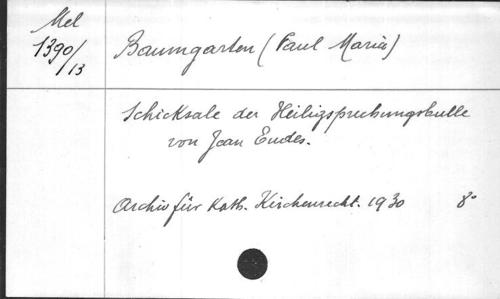 Mel
1390/13
Baumgarten (Paul Maria)
Schicksale der Heiligsprechungsbulle
von Jean Eudes.
Archiv für Kath. Kirchenrecht. 1930 8°